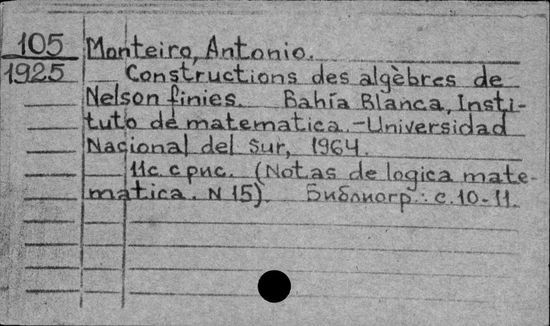 105 Monteiro, Antonio.
1925 Constructions des algèbres de
Nelson finies. Bahía Blanca, Insti-
tuto de matematica.-Universidad
Nacional del Sur, 1964.
11с. с рис. (Notas de logica mate-
matica. N 15). Библиогр.: с. 10-11.